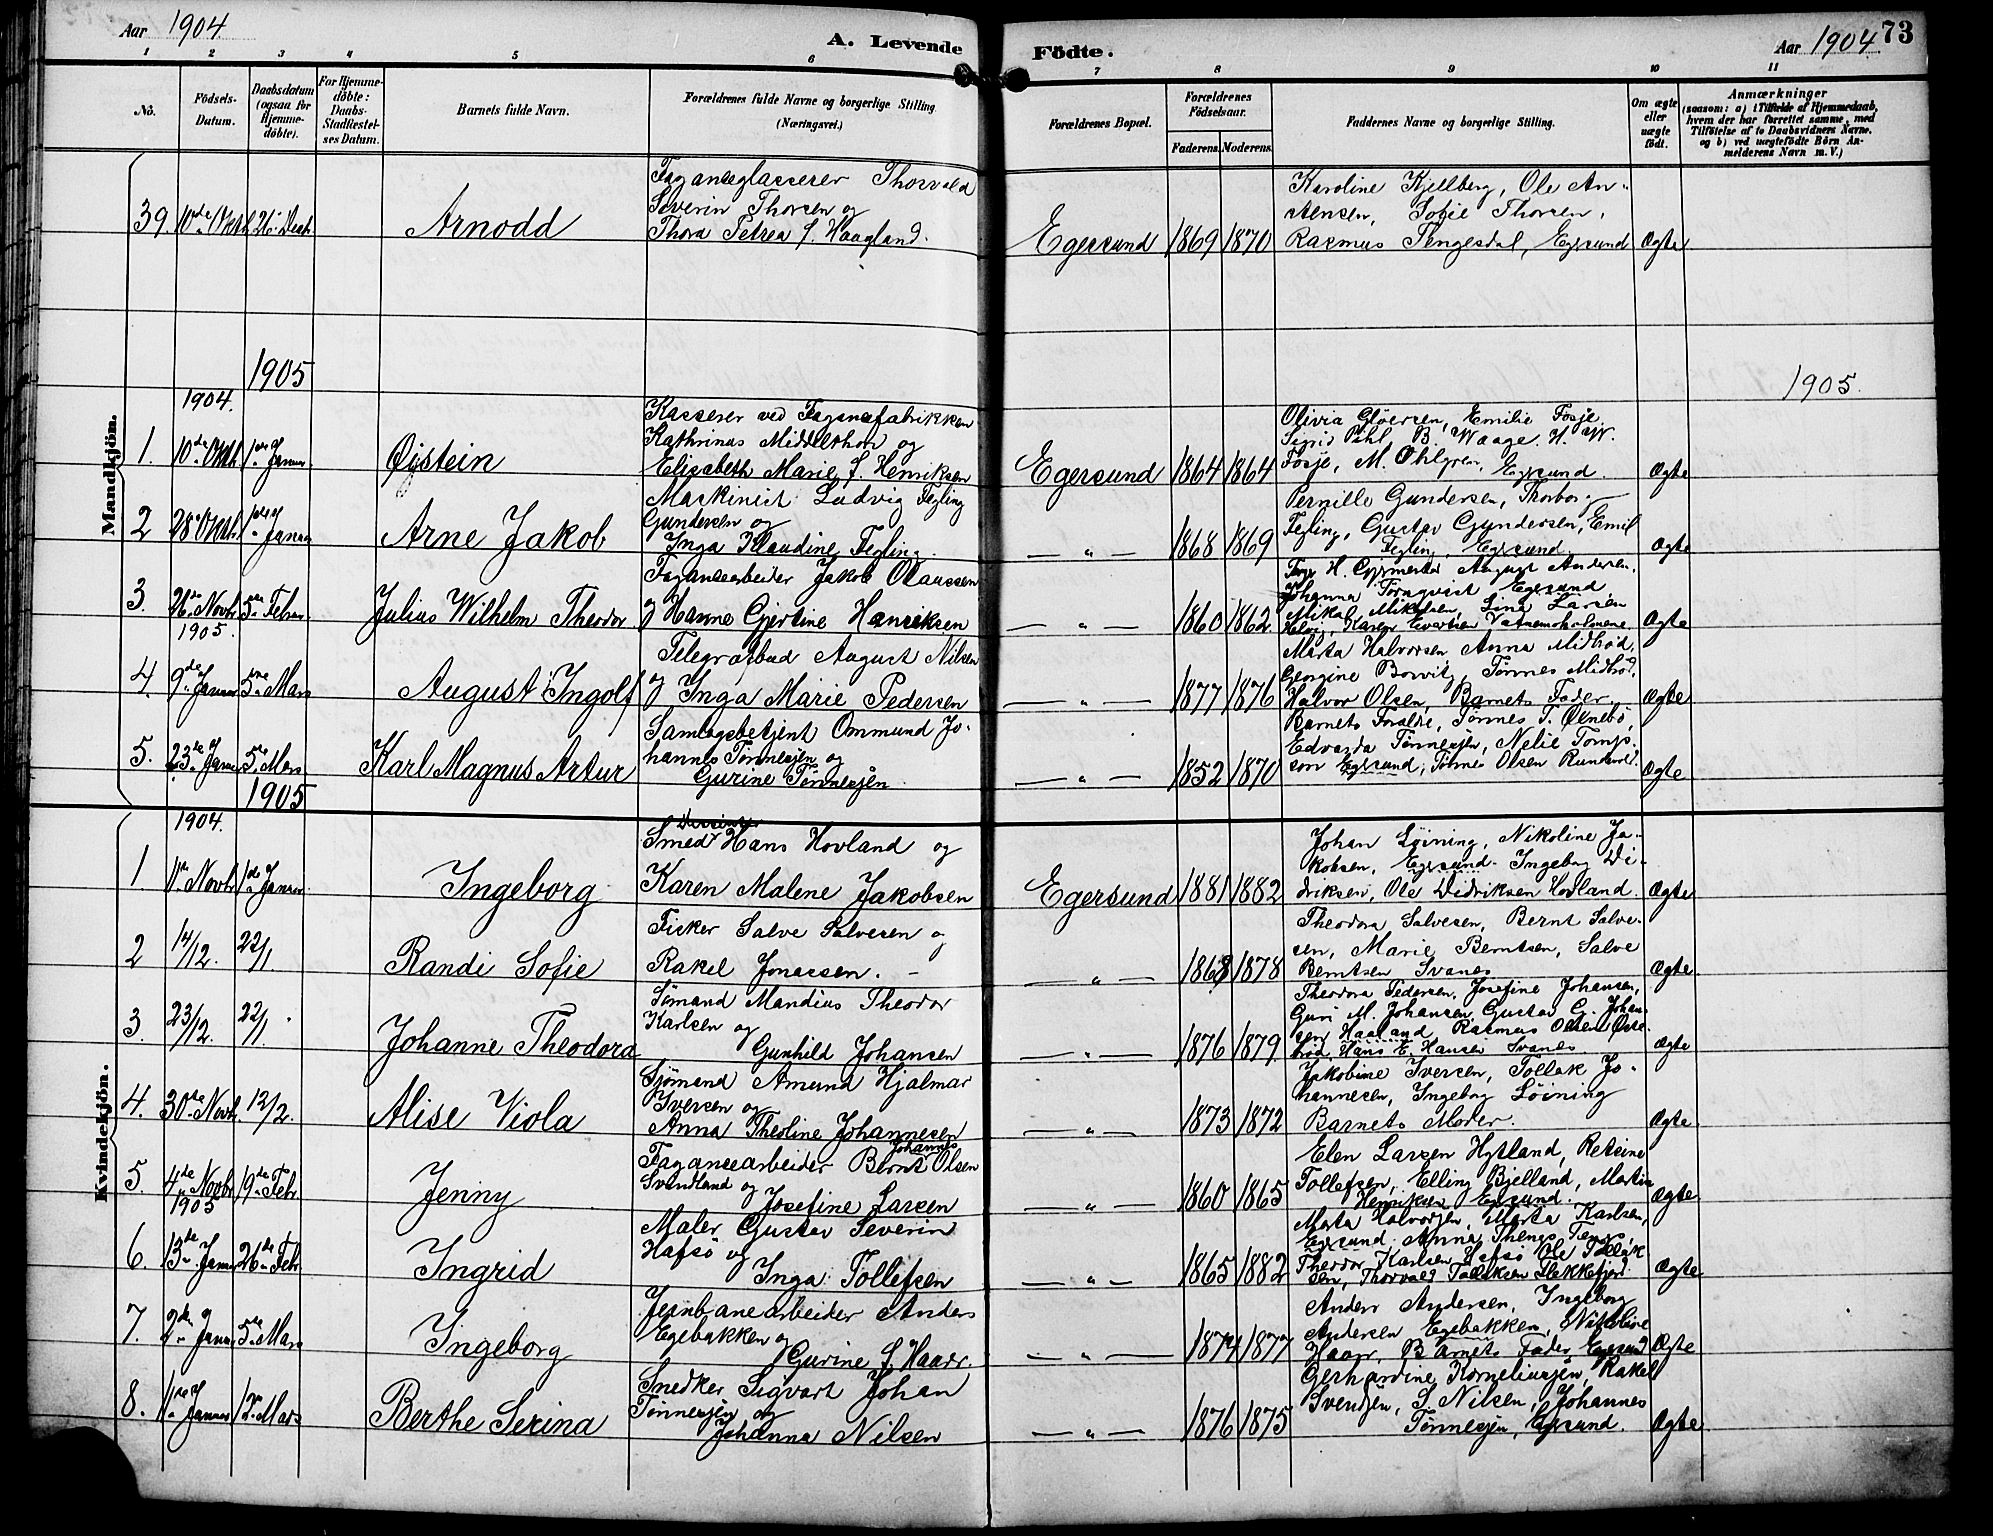 Aar 1904.
A. Levende
Födte.
Aar 1904.
73
1 2 3 4 5 6 7 8 9 10 11
No.
Födsels-
Datum.
Daabsdatum
(ogsaa for
Hjemme-
döbte).
For Hjemme-
döbte:
Daabs-
Stadfæstel-
ses Datum.
Barnets fulde Navn.
Forældrenes fulde Navne og borgerlige Stilling
(Næringsvei.)
Forældrenes Bopæl.
Forældrenes
Födselsaar.
Faderens. Moderens.
Faddernes Navne og borgerlige Stilling.
Om ægte
eller
uægte
födt.
Anmærkninger
(saasom: a) i Tilfælde af Hjemmedaab,
hvem der har forrettet samme, med
Tilföielse af to Daabsvidners Navne,
og b) ved uægtefödte Börn An-
melderens Navn m. V.)
Mandkjöm.
39 10de Oktb 26. Decb. Arnodd
Fayanceglasserer Thorvald
Severin Thorsen og
Thora Petrea f. Haagland.
Egersund 1869 1870
Karoline Kjellberg, Ole An-
Sofie Thorsen,
Rasmus Tengesdal, Egersund Ægte
1905
1905.
1904.
1. 10de Oktb 1ste Januar. Øistein
Kasserer ved Fayancefabrikken
Kathrinus Middelthon og
Elisabeth Marie f. Henriksen
Egersund 1864 1864
Olivia Gløersen, Emilie Fosje,
Sigrid Pihl B. Waage. H. W.
Fosje, M. Ohlgren, Egersund. Ægte
2 28 Oktb. 1ste Januar Arne Jakob
Maskinist Ludvig Tegling
Gundersen og
Inga Klaudine Tegling.
— " — 1868 1869
Pernille Gundersen, Thorborg
Tegling, Gustav Gundersen, Emil
Tegling, Egersund. Ægte
3. 26de Novbr 5te Februar Julius Wilhelm Theodor
Fayancearbeider Jakob Olaussen
og Hanne Gjertine Henriksen
— " — 1860 1862
August Andersen,
Johanna Törnqvist Egersund,
Mikal Mikalsen, Sina Larsen
Karen Evertsen Ægte
1905.
4. 9de Januar 5te Mars August Ingolf
Telegrafbud August Nilsen
og Inga Marie Pedersen
— " — 1877 1876
Marta Halvorsen Anna Midbrød,
Georgine Tønnes Midbrød,
Halvor Olsen, Barnets Fader. Ægte
5. 23de Januar 5te Mars Karl Magnus Artur
Samlagsbetjent Ommund Jo-
hannes Tønnesjen og
Gurine Tønnesjen.
— " — 1852 1870
Barnets Forældre, Tønnes T.
Edvarda Tønnesjen, Nelie Tomp-
son Egersund, Tønnes Olsen Ægte
1905
Kvindekjön.
1904.
1 11te Novbr 1ste Januar. Ingeborg
Smed Hans Hovland og
Karen Malene Jakobsen
Egersund 1881 1882
Johan Løining, Nikoline Ja-
kobsen, Egersund. Ingeborg Di-
driksen, Ole Didriksen Hovland. Ægte
2 14/12. 22/1. Randi Sofie
Fisker Salve Salvesen og
Rakel Jonassen. —
— " — 1868 1878
Theodora Salvesen, Bernt Salve-
sen, Marie Berntsen, Salve
Berntsen Svanes Ægte
3. 23/12. 22/1. Johanne Theodora
Sømand Mandius Theodor
Karlsen og
Gunhild Johansen
— " — 1876 1879
Theodora Pedersen, Josefine Johansen,
Guri M. Johansen, Gustav G. Johan-
sen Haaland Rasmus Olsen
Hans E. Hansen Svanes Ægte
4. 30te Novb. 12/2. Alise Viola
Sjömand Amund Hjalmar
Iversen og
Anna Theoline Johannesen
— " — 1873 1872
Jakobine Iversen, Tollak Jo-
hannesen, Ingeborg Löining
Barnets Moder. Ægte.
5. 4de Novbr 19de Febr. Jenny
Fayancearbeider Bernt Johannes Olsen
Svindland og
Josefine Larsen
— " — 1860 1865
Elen Larsen Hytland, Retsine
Tollefsen, Elling Bjelland, Martin
Henriksen Egersund. Ægte
1905
6. 13de Januar 26de Febr. Ingrid
Maler Gustav Severin
Hafsø og
Inga Tollefsen
— " — 1865 1882
Marta Halvorsen, Marta Karlsen,
Egersund. Anna
Theodor Karlsen Hafsø Ole Tollak-
sen, Thorvald Tollaksen Flekkefjord Ægte
7. 2den Januar 5te Mars Ingeborg
Jernbanearbeider Anders
Egebakken og
Gurine f. Haar.
— " — 1874 1877
Anders Andersen, Ingeborg
Andersen Egebakken, Nikoline
Haar, Barnets Fader, Egersund Ægte
8. 1ste Januar 12te Mars Berthe Serina
Snedker Sigvart Johan
Tønnesjen og
Johanna Nilsen
— " — 1876 1875
Gerhardine Korneliusjen, Rakel
Svendsen, S. Nilsen, Johannes
Tønnesjen, Egersund. Ægte